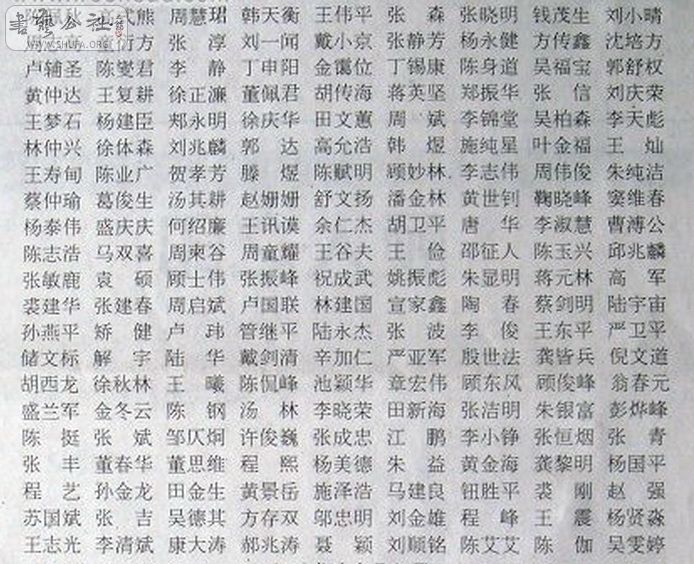 書法公社
WWW.SHUFA.ORG
熊 周慧珺 韩天衡 王伟平 张 森 张晓明 钱茂生 刘小晴
方 张 淳 刘一闻 戴小京 张静芳 杨永健 方传鑫 沈培方
卢辅圣 陈燮君 李 静 丁申阳 金霭位 丁锡康 陈身道 吴福宝 郭舒权
黄仲达 王复耕 徐正濂 董佩君 胡传海 蒋英坚 郑振华 张 信 刘庆荣
王梦石 杨建臣 郏永明 徐庆华 田文蕙 周 斌 李锦堂 吴柏森 李天彪
林仲兴 徐体森 刘兆麟 郭 达 高允浩 韩 煜 施纯星 叶金福 王 灿
王寿甸 陈业广 贺孝芳 滕 煜 陈赋明 顾妙林 李志伟 周伟俊 朱纯洁
蔡仲瑜 葛俊生 汤其耕 赵姗姗 舒文扬 潘金林 黄世钊 鞠晓峰 窦维春
杨泰伟 盛庆庆 何绍廉 王讯谟 余仁杰 胡卫平 唐 华 李淑慧 曹溥公
陈志浩 马双喜 周柬谷 周童耀 王谷夫 王 俭 邵征人 陈玉兴 邱兆麟
张敏鹿 袁 硕 顾士伟 张振峰 祝成武 姚振彪 朱显明 蒋元林 高 军
裘建华 张建春 周启斌 卢国联 林建国 宣家鑫 陶 春 蔡剑明 陆宇宙
孙燕平 矫 健 卢 玮 管继平 陆永杰 张 波 李 俊 王东平 严卫平
储文标 解 宇 陆 华 戴剑清 辛加仁 严亚军 殷世法 龚皆兵 倪文道
胡西龙 徐秋林 王 曦 陈侃峰 池颖华 章宏伟 顾东风 顾俊峰 翁春元
盛兰军 金冬云 陈 钢 汤 林 李晓荣 田新海 张洁明 朱银富 彭烨峰
陈 挺 张 斌 邹仄炯 许俊巍 张成忠 江 鹏 李小铮 张恒烟 张 青
张 丰 董春华 董思维 程 熙 杨美德 朱 益 黄金海 龚黎明 杨国平
程 艺 孙金龙 田金生 黄景岳 施泽浩 马建良 钮胜平 裘 刚 赵 强
苏国斌 张 吉 吴德其 方存双 邬忠明 刘金雄 程 峰 王 震 杨贤淼
王志光 李清斌 康大涛 郝兆涛 聂 颖 刘顺铭 陈艾艾 陈 伽 吴雯婷